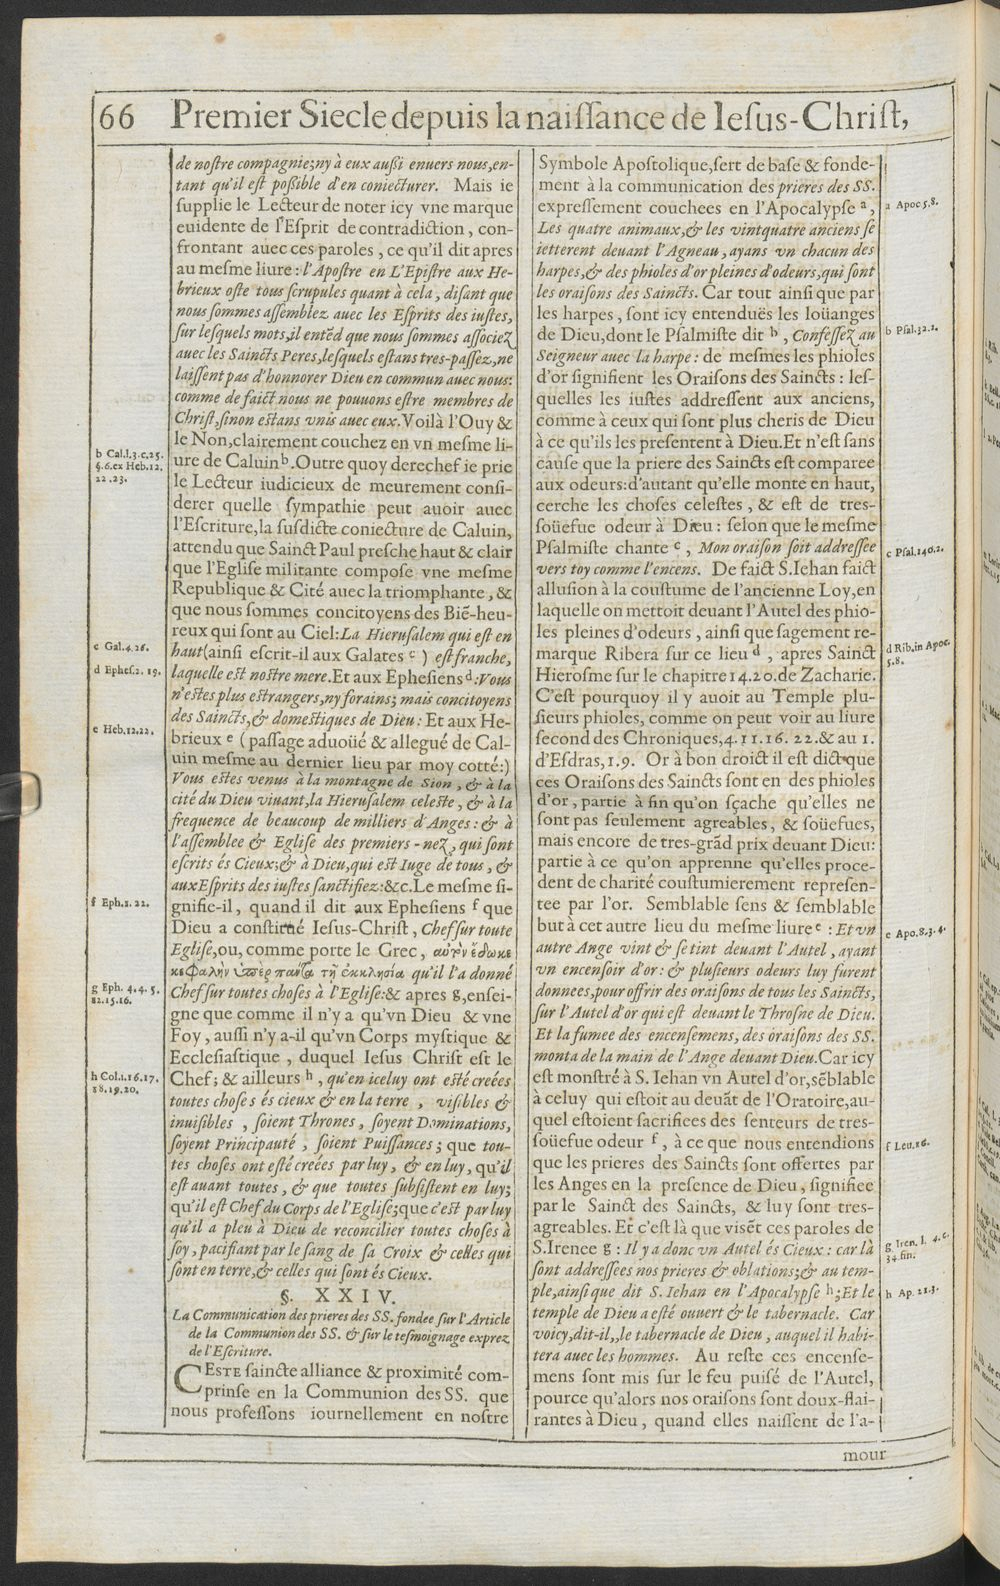 66 Premier Siecle depuis la naiſſance de Ieſus-Chriſt,
de noſtre compagnie; ny à eux außi enuers nous, en-
tant qu'il eſt poßible d'en coniecturer. Mais ie
ſupplie le Lecteur de noter icy vne marque
euidente de l'Eſprit de contradiction, con-
frontant auec ces paroles, ce qu'il dit apres
au meſme liure: l'Apoſtre en L'Epiſtre aux He-
brieux oſte tous ſcrupules quant à cela, diſant que
nous ſommes aſſemblez auec les Eſprits des iuſtes,
ſur leſquels mots, il entẽd que nous ſommes aſſociez
auec les Saincts Peres, leſquels eſtans tres-paſſez, ne
laiſſent pas d'honnorer Dieu en commun auec nous:
comme de faict nous ne pouuons eſtre membres de
Chriſt, ſinon eſtans vnis auec eux. Voilà l'Ouy &
le Non, clairement couchez en vn meſme li-
ure de Caluin b. Outre quoy derechef ie prie
le Lecteur iudicieux de meurement conſi-
derer quelle ſympathie peut auoir auec
l'Eſcriture, la ſuſdicte coniecture de Caluin,
attendu que Sainct Paul preſche haut & clair
que l'Egliſe militante compoſe vne meſme
Republique & Cité auec la triomphante, &
que nous ſommes concitoyens des Biẽ-heu-
reux qui ſont au Ciel: La Hieruſalem qui eſt en
haut (ainſi eſcrit-il aux Galates c) eſt franche,
laquelle eſt noſtre mere. Et aux Epheſiens d: Vous
n'eſtes plus eſtrangers, ny forains; mais concitoyens
des Saincts, & domeſtiques de Dieu: Et aux He-
brieux e (paſſage aduoüé & allegué de Cal-
uin meſme au dernier lieu par moy cotté:)
Vous eſtes venus à la montagne de Sion, & à la
cité du Dieu viuant, la Hieruſalem celeſte, & à la
frequence de beaucoup de milliers d'Anges: & à
l'aſſemblee & Egliſe des premiers-nez, qui ſont
eſcrits és Cieux; & à Dieu, qui eſt Iuge de tous, &
aux Eſprits des iuſtes ſanctifiez: &c. Le meſme ſi-
gnifie-il, quand il dit aux Epheſiens f que
Dieu a conſtitué Ieſus-Chriſt, Chef ſur toute
Egliſe, ou, comme porte le Grec, αὐτὸν ἔδωκε
κεφαλὴν ὑπὲρ πάντα τῇ ἐκκλησίᾳ qu'il l'a donné
Chef ſur toutes choſes à l'Egliſe: & apres g, enſei-
gne que comme il n'y a qu'vn Dieu & vne
Foy, auſſi n'y a-il qu'vn Corps myſtique &
Eccleſiaſtique, duquel Ieſus Chriſt eſt le
Chef; & ailleurs h, qu'en iceluy ont eſté creées
toutes choſes és cieux & en la terre, viſibles &
inuiſibles, ſoient Thrones, ſoyent Dominations,
ſoyent Principauté, ſoient Puiſſances; que tou-
tes choſes ont eſté creées par luy, & en luy, qu'il
eſt auant toutes, & que toutes ſubſiſtent en luy;
qu'il eſt Chef du Corps de l'Egliſe; que c'eſt par luy
qu'il a pleu à Dieu de reconcilier toutes choſes à
ſoy, pacifiant par le ſang de ſa Croix & celles qui
ſont en terre, & celles qui ſont és Cieux.
§. XXIV.
La Communication des prieres des SS. fondee ſur l'Article
de la Communion des SS. & ſur le teſmoignage exprez
de l'Eſcriture.
CESTE ſaincte alliance & proximité com-
prinſe en la Communion des SS. que
nous profeſſons iournellement en noſtre
b Cal. l. 3. c. 25.
§. 6. ex Heb. 12.
22. 23.
c Gal. 4. 26.
d Epheſ. 2. 19.
e Heb. 12. 22.
f Eph. 1. 22.
g Eph. 4. 4. 5.
12. 15. 16.
h Col. 1. 16. 17.
18. 19. 20.
Symbole Apoſtolique, ſert de baſe & fonde-
ment à la communication des prieres des SS.
expreſſement couchees en l'Apocalypſe a,
Les quatre animaux, & les vintquatre anciens ſe
ietterent deuant l'Agneau, ayans vn chacun des
harpes, & des phioles d'or pleines d'odeurs, qui ſont
les oraiſons des Saincts. Car tout ainſi que par
les harpes, ſont icy entenduës les loüanges
de Dieu, dont le Pſalmiſte dit b, Confeſſez au
Seigneur auec la harpe: de meſmes les phioles
d'or ſignifient les Oraiſons des Saincts: leſ-
quelles les iuſtes addreſſent aux anciens,
comme à ceux qui ſont plus cheris de Dieu
à ce qu'ils les preſentent à Dieu. Et n'eſt ſans
cauſe que la priere des Saincts eſt comparee
aux odeurs: d'autant qu'elle monte en haut,
cerche les choſes celeſtes, & eſt de tres-
ſoüefue odeur à Dieu: ſelon que le meſme
Pſalmiſte chante c, Mon oraiſon ſoit addreſſee
vers toy comme l'encens. De faict S. Iehan faict
alluſion à la couſtume de l'ancienne Loy, en
laquelle on mettoit deuant l'Autel des phio-
les pleines d'odeurs, ainſi que ſagement re-
marque Ribera ſur ce lieu d, apres Sainct
Hieroſme ſur le chapitre 14. 20. de Zacharie.
C'eſt pourquoy il y auoit au Temple plu-
ſieurs phioles, comme on peut voir au liure
ſecond des Chroniques, 4. 11. 16. 22. & au 1.
d'Eſdras, 1. 9. Or à bon droict il eſt dict que
ces Oraiſons des Saincts ſont en des phioles
d'or, partie à fin qu'on ſçache qu'elles ne
ſont pas ſeulement agreables, & ſoüefues,
mais encore de tres-grãd prix deuant Dieu:
partie à ce qu'on apprenne qu'elles proce-
dent de charité couſtumierement repreſen-
tee par l'or. Semblable ſens & ſemblable
but à cet autre lieu du meſme liure e: Et vn
autre Ange vint & ſe tint deuant l'Autel, ayant
vn encenſoir d'or: & pluſieurs odeurs luy furent
donnees, pour offrir des oraiſons de tous les Saincts,
ſur l'Autel d'or qui eſt deuant le Throſne de Dieu.
Et la fumee des encenſemens, des oraiſons des SS.
monta de la main de l'Ange deuant Dieu. Car icy
eſt monſtré à S. Iehan vn Autel d'or, sẽblable
à celuy qui eſtoit au deuãt de l'Oratoire, au-
quel eſtoient ſacrifices des ſenteurs de tres-
ſoüefue odeur f, à ce que nous entendions
que les prieres des Saincts ſont offertes par
les Anges en la preſence de Dieu, ſignifiee
par le Sainct des Saincts, & luy ſont tres-
agreables. Et c'eſt là que viſẽt ces paroles de
S. Irenee g: Il y a donc vn Autel és Cieux: car là
ſont addreſſees nos prieres & oblations; & au tem-
ple, ainſi que dit S. Iehan en l'Apocalypſe h; Et le
temple de Dieu a eſté ouuert & le tabernacle. Car
voicy, dit-il, le tabernacle de Dieu, auquel il habi-
tera auec les hommes. Au reſte ces encenſe-
mens ſont mis ſur le feu puiſé de l'Autel,
pource qu'alors nos oraiſons ſont doux-flai-
rantes à Dieu, quand elles naiſſent de l'a-
mour
a Apoc. 5. 8.
b Pſal. 32. 2.
c Pſal. 140. 2.
d Rib. in Apoc.
5. 8.
e Apo. 8. 3. 4.
f Leu. 16.
g Iren. l. 4. c.
34. fin.
h Ap. 21. 3.